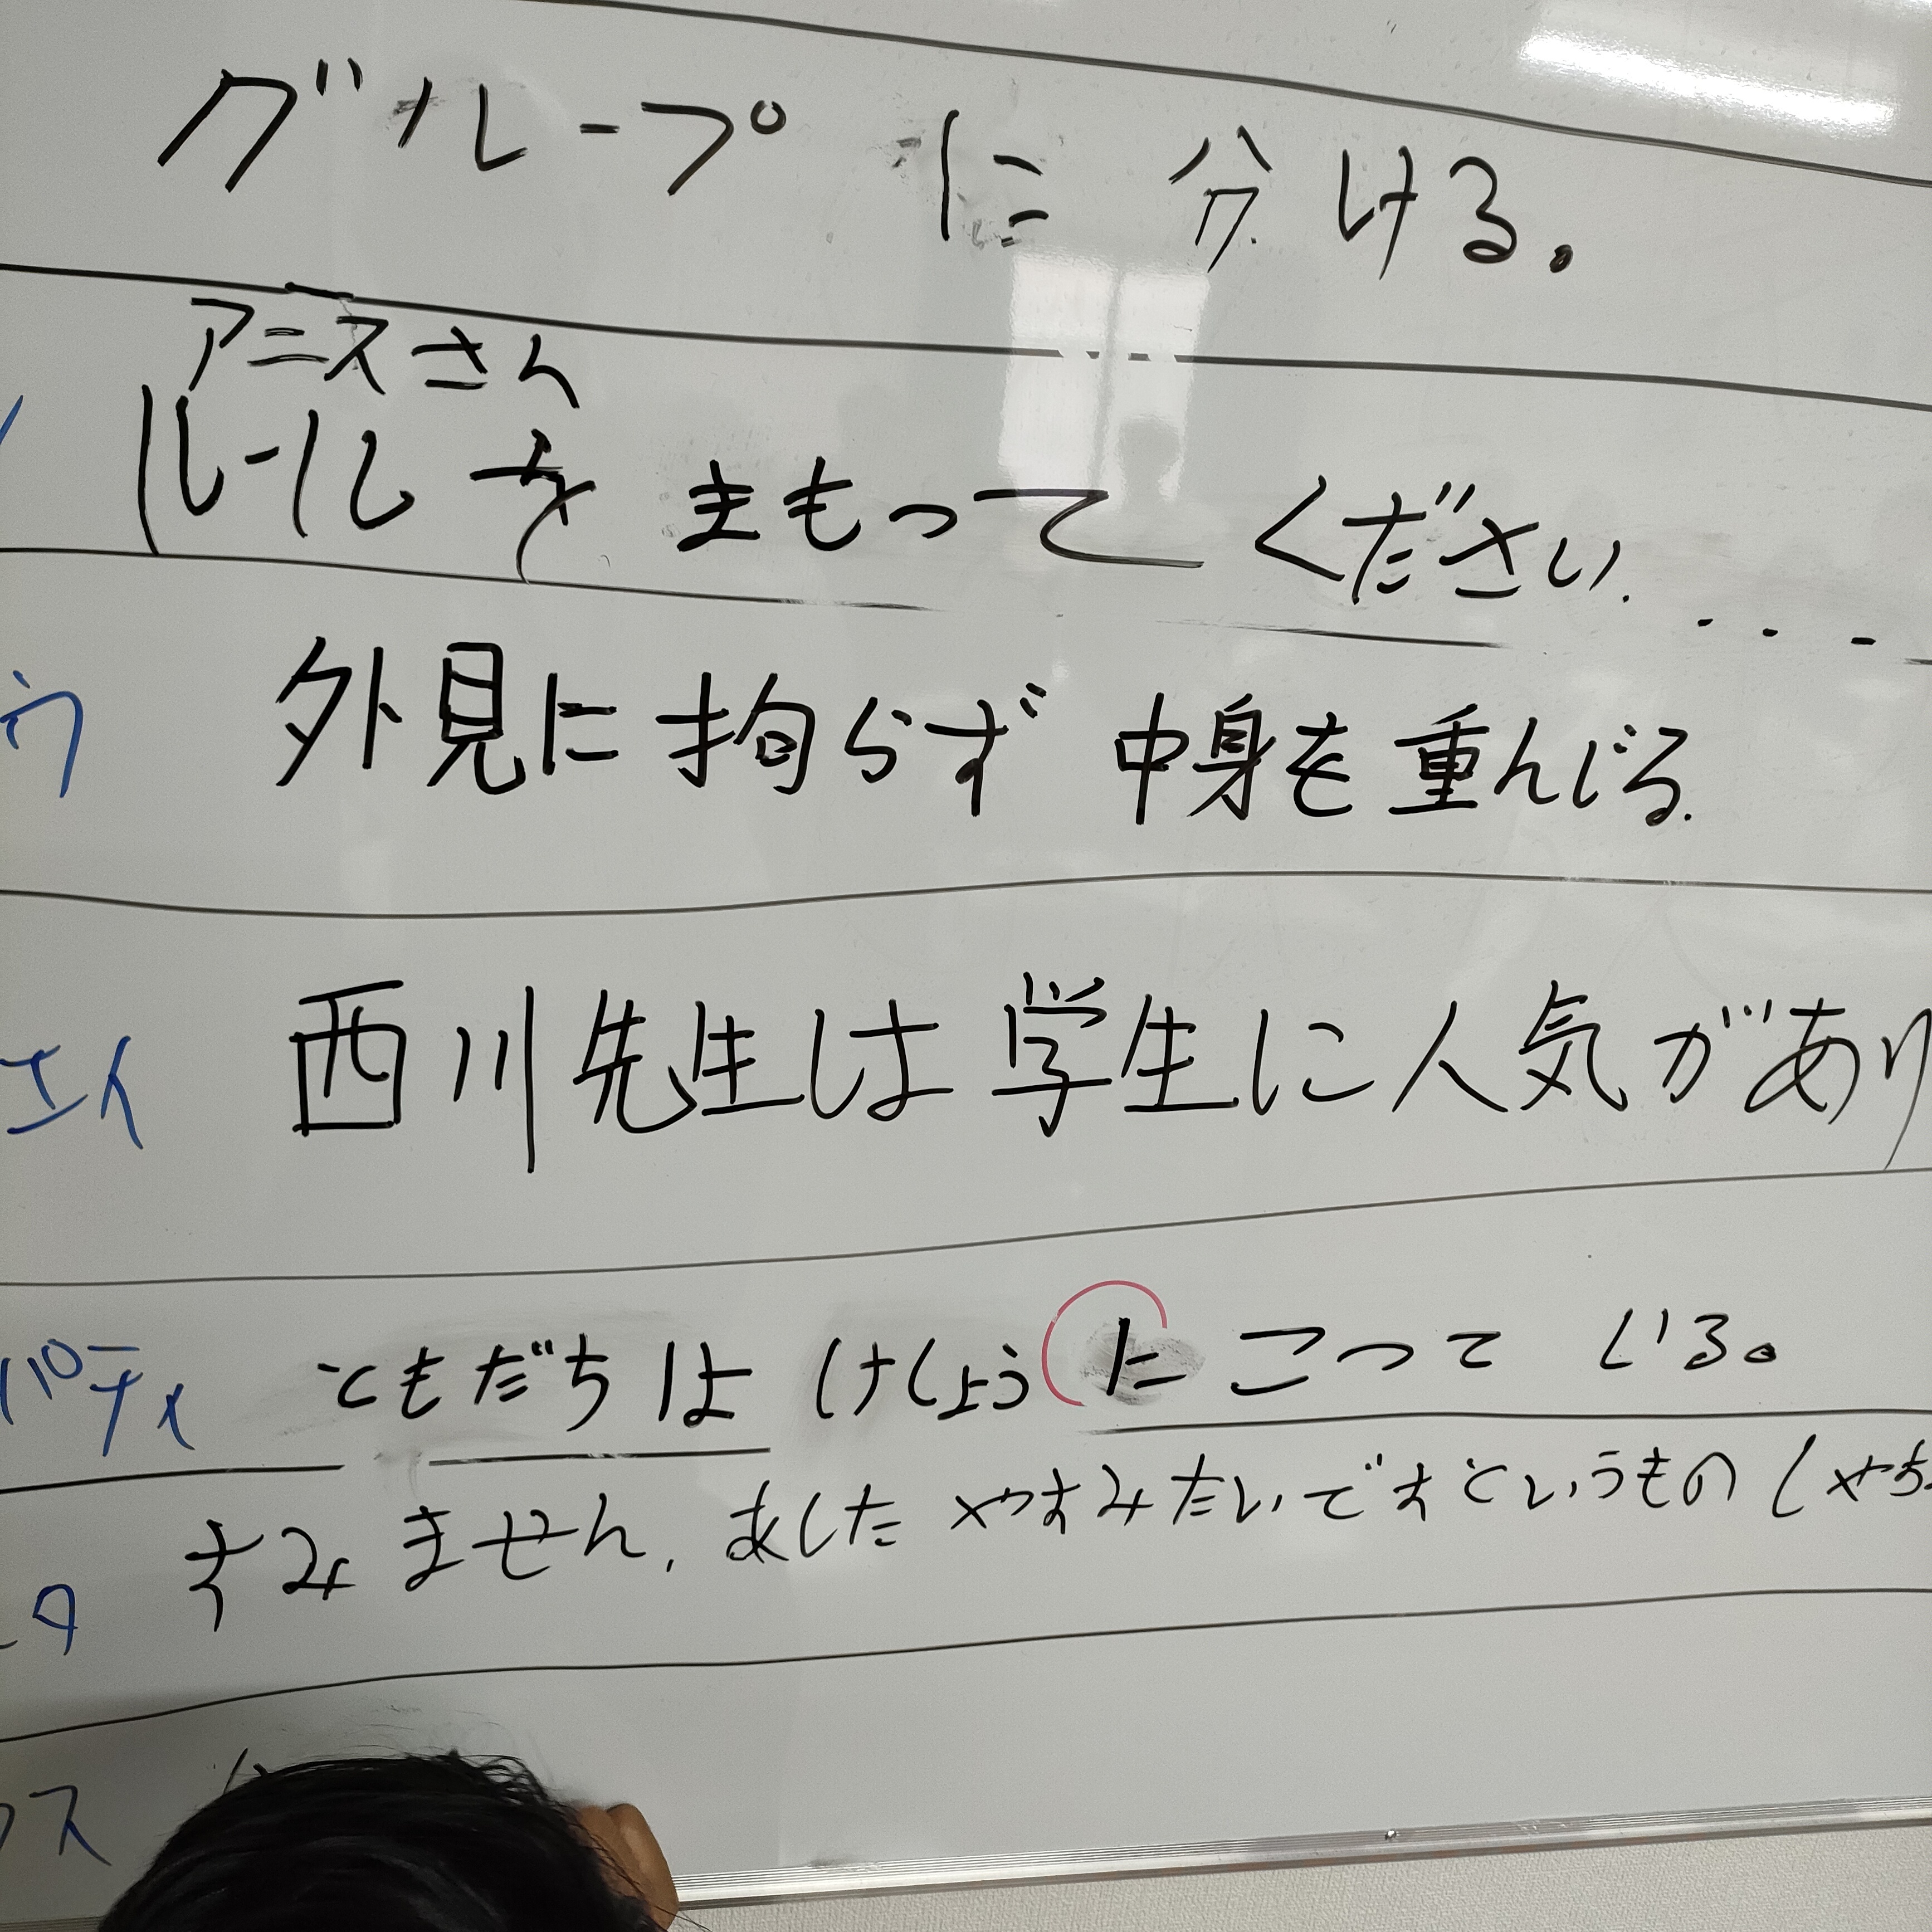 グループに分ける。
アニスさん
ルールをまもってください. . . -
う 外見に拘らず 中身を重んじる.
エん 西川先生は学生に人気があり
パティ ともだちは けしょうに こって いる。
すみません, あした やすみたいですというもの しゃち
タ
ス